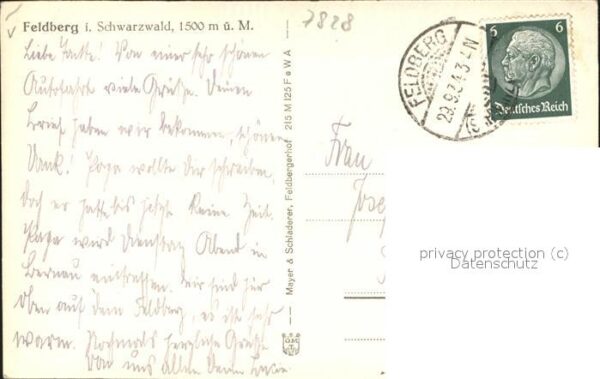 Feldberg i. Schwarzwald, 1500 m ü. M.
7828
Liebe Tante! Von einer sehr schönen
Autofahrt viele Grüße. Deinen
Brief haben wir bekommen, schönen
Dank! Papa wollte dir schreiben,
doch er hatte bis jetzt keine Zeit.
Papa wird Dienstag Abend in
Bernau eintreffen. Wir sind hier
oben auf dem Feldberg, es ist sehr
warm. Nochmals herzliche Grüße
von uns allen Deine
Mayer & Schladerer, Feldbergerhof 215 M 125 FeWA
FELDBERG
(SCHWARZW)
6 6
Deutsches Reich
Frau
privacy protection (c)
Datenschutz